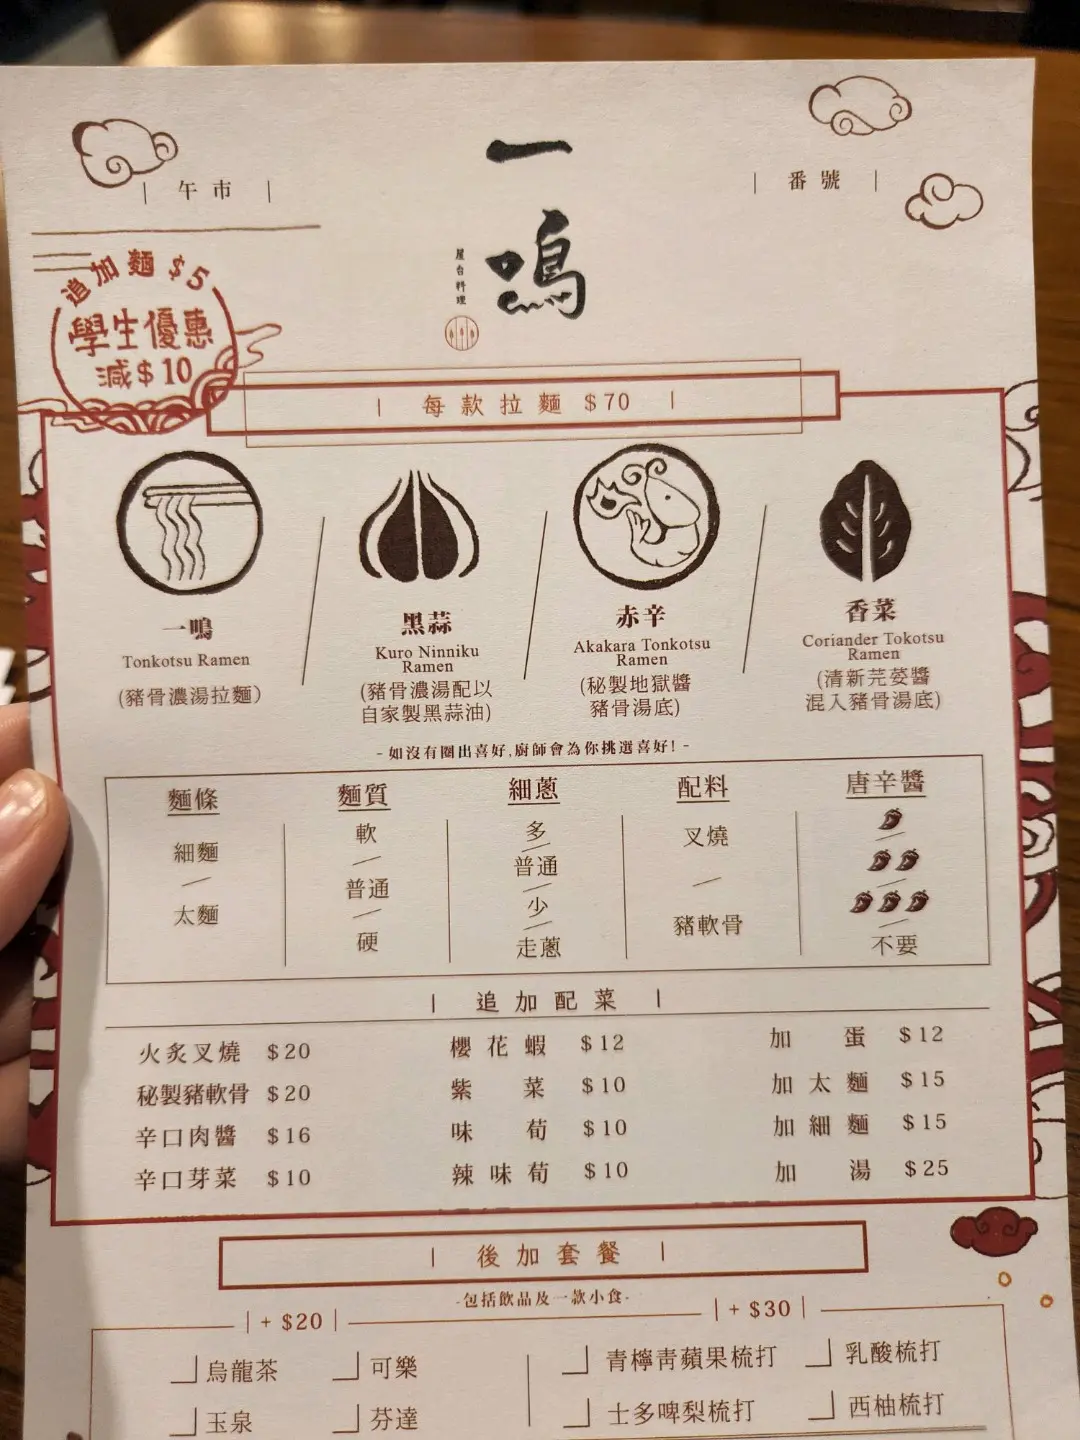 | 午市 |
一鳴
屋台料理
| 番號 |
追加麵 $5
學生優惠
減$10
| 每款拉麵 $70 |
一鳴
Tonkotsu Ramen
(豬骨濃湯拉麵)
黑蒜
Kuro Ninniku
Ramen
(豬骨濃湯配以
自家製黑蒜油)
赤辛
Akakara Tonkotsu
Ramen
(秘製地獄醬
豬骨湯底)
香菜
Coriander Tokotsu
Ramen
(清新芫荽醬
混入豬骨湯底)
- 如沒有圈出喜好,廚師會為你挑選喜好! -
麵條
細麵
太麵
麵質
軟
普通
硬
細蔥
多
普通
少
走蔥
配料
叉燒
豬軟骨
唐辛醬
不要
| 追加配菜 |
火炙叉燒 $20
秘製豬軟骨 $20
辛口肉醬 $16
辛口芽菜 $10
櫻花蝦 $12
紫菜 $10
味荀 $10
辣味荀 $10
加蛋 $12
加太麵 $15
加細麵 $15
加湯 $25
| 後加套餐 |
-包括飲品及一款小食-
| + $20 |
烏龍茶
可樂
玉泉
芬達
| + $30 |
青檸青蘋果梳打
乳酸梳打
士多啤梨梳打
西柚梳打